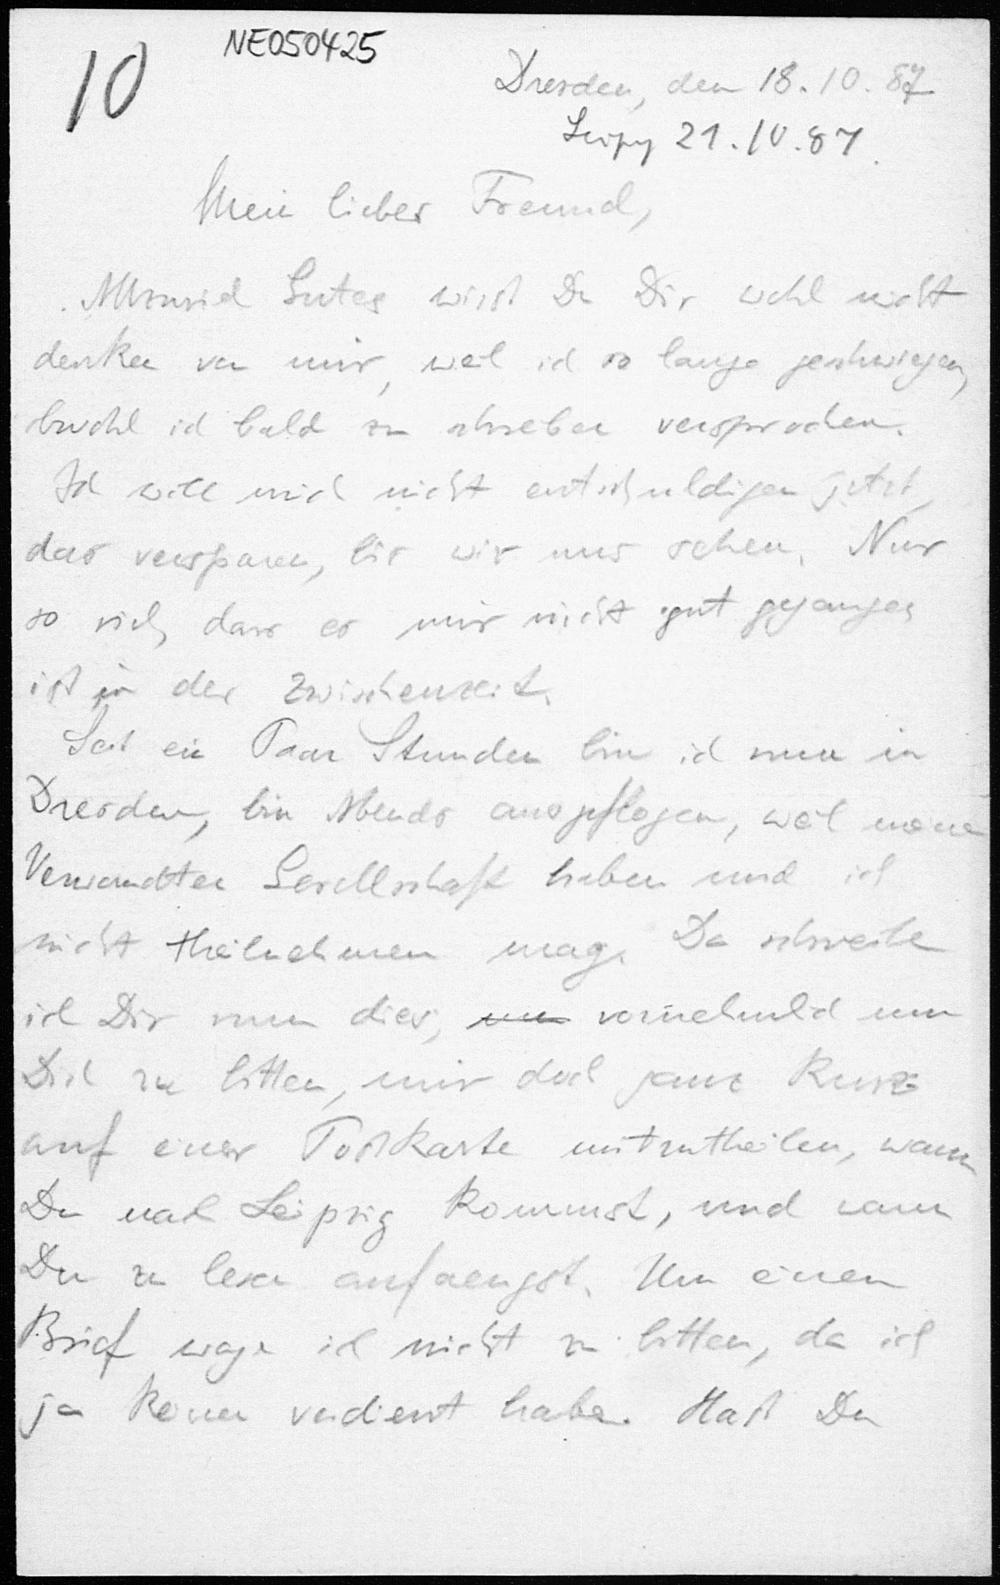 NE050425
10
Dresden, den 18.10.87
Leipzig 21.10.87.
Mein lieber Freund,
Allzuviel Gutes wirst Du Dir wohl nicht
denken von mir, weil ich so lange geschwiegen,
bwohl ich bald zu schreiben versprochen.
Ich will mich nicht entschuldigen jetzt,
das versparen, bis wir uns sehen. Nur
so viel, dass es mir nicht gut gegangen
ist in der Zwischenzeit.
Seit ein Paar Stunden bin ich nun in
Dresden, bin Abends ausgeflogen, weil meine
Verwandten Gesellschaft haben und ich
nicht theilnehmen mag. Da schreibe
ich Dir nun dies, vornehmlich um
Dich zu bitten, mir doch ganz kurz
auf einer Postkarte mitzutheilen, wann
Du nach Leipzig kommst, und wann
Du zu lesen anfaengst. Um einen
Brief wage ich nicht zu bitten, da ich
ja keinen verdient habe. Hast Du